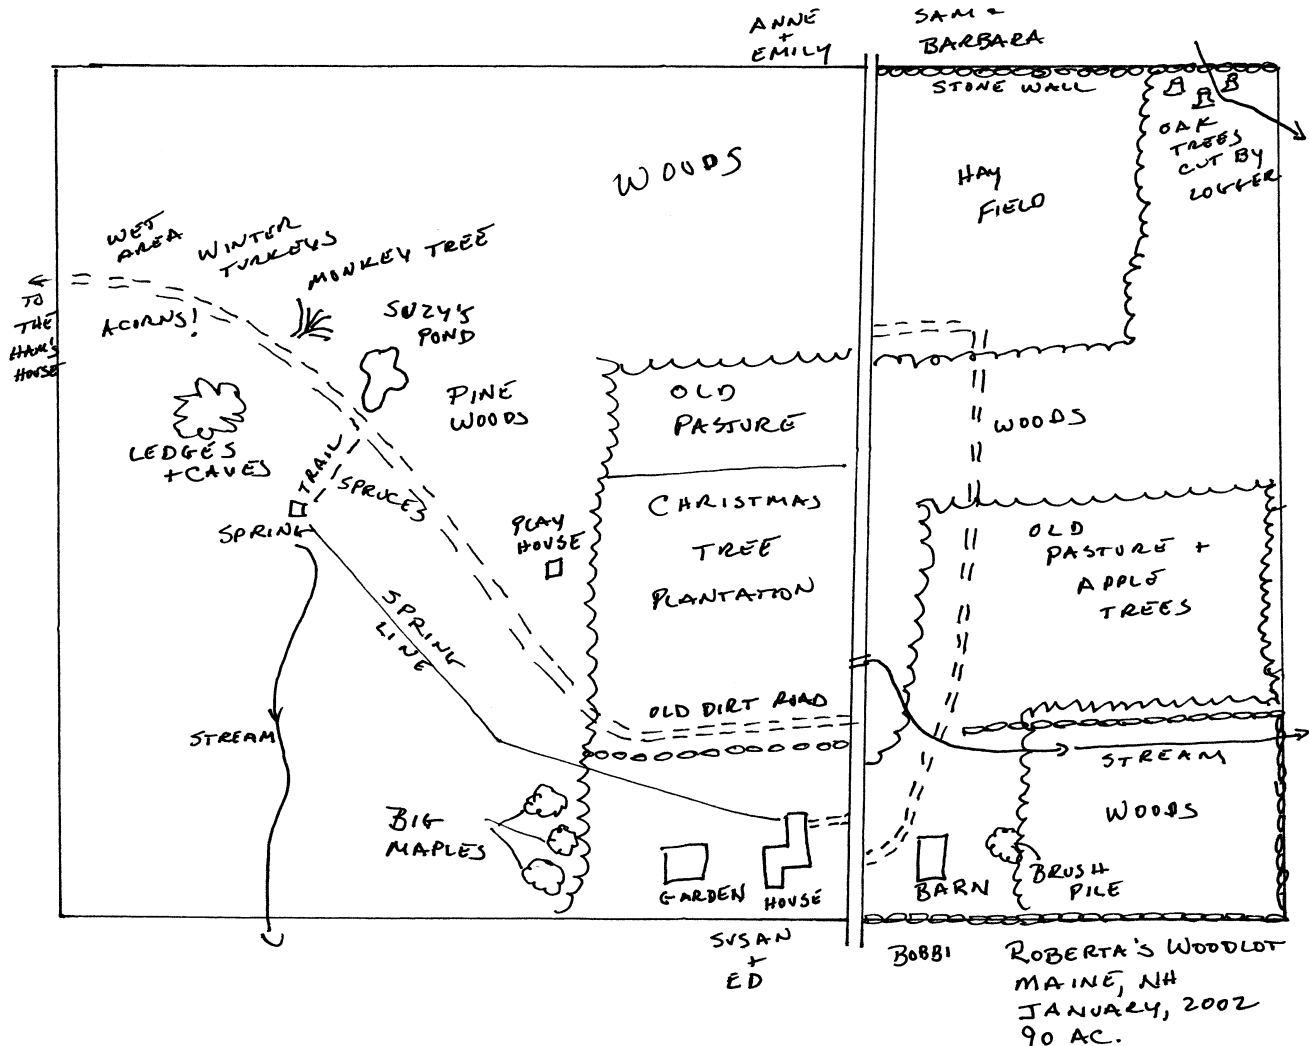 ANNE
+
EMILY
SAM &
BARBARA
STONE WALL
OAK
TREES
CUT BY
LOGGER
WOODS
HAY
FIELD
WET
AREA
WINTER
TURKEYS
MONKEY TREE
TO
THE
HAM'S
HOUSE
ACORNS!
SUZY'S
POND
PINE
WOODS
OLD
PASTURE
WOODS
LEDGES
+ CAVES
TRAIL
SPRUCES
SPRING
PLAY
HOUSE
CHRISTMAS
TREE
PLANTATION
OLD
PASTURE +
APPLE
TREES
SPRING
LINE
OLD DIRT ROAD
STREAM
STREAM
BIG
MAPLES
WOODS
GARDEN
HOUSE
BARN
BRUSH
PILE
SUSAN
+
ED
BOBBI
ROBERTA'S WOODLOT
MAINE, NH
JANUARY, 2002
90 AC.